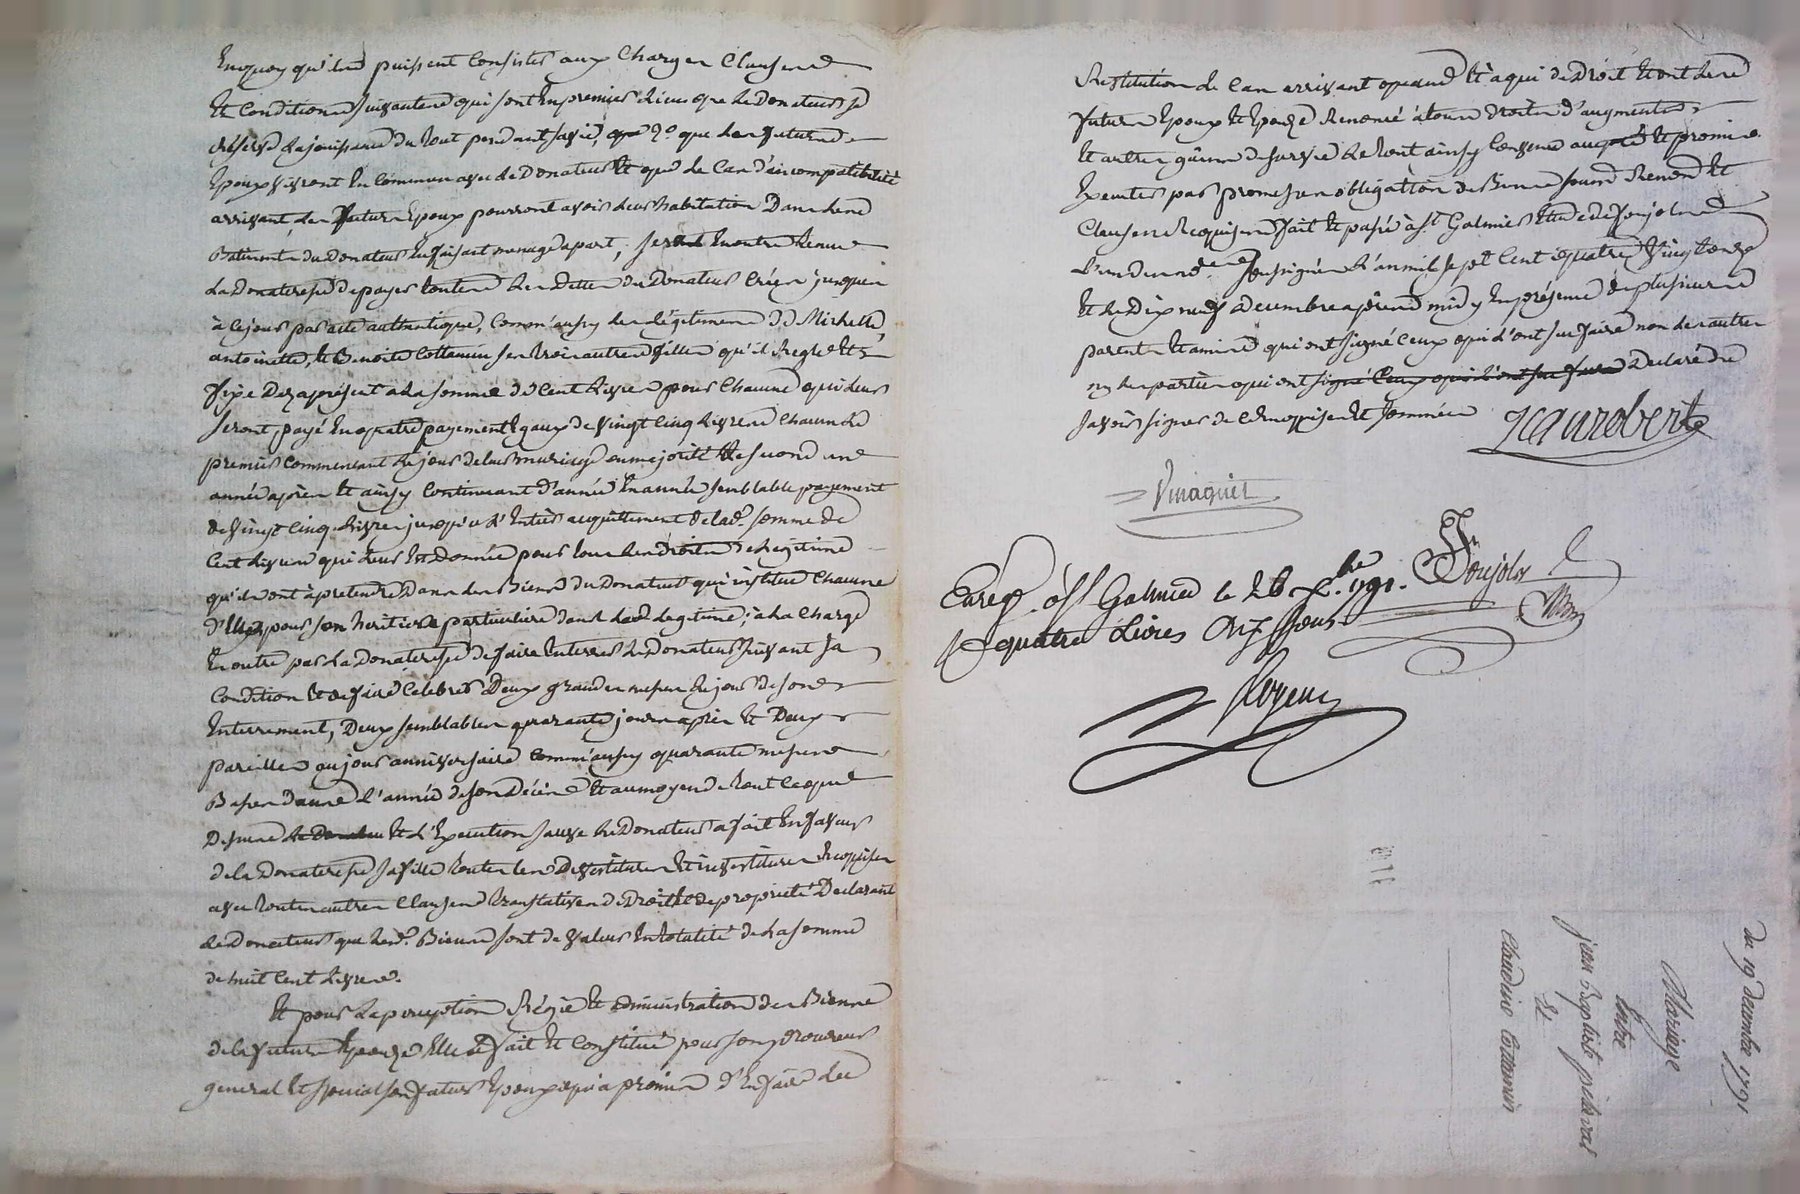 Enquoy qu'ils puissent Consister aux Charges Clauses
Et Conditions suivantes qui sont Enpremier lieu que le Donateur se
réserve la jouissance du tout pendant sa vie, 2.o que les futurs
Epoux vivront En Commun avec le Donateur Et que le Cas d'incompatibilité
arrivant, les futurs Epoux pourront avoir leur habitation Dans les
Batiments du Donateur En faisant menage apart; sera En outre tenue
La Donateresse de payer toutes les Dettes du Donateur Créées jusques
à ce jour par acte authentique, Comm'aussy les légitimes de Michelle,
antoinette, Et Benoite Cottancin ses trois autres filles qu'il Regle Et
fixe Dezapresent a la somme de Cent Livres pour Chacune qui leur
seront payé En quatre payements Egaux de vingt Cinq Livres Chacun le
premier Commencant le jour de leur mariage ou majorité Le second une
année après Et ainsy Continuant d'année En année semblable payement
de vingt Cinq Livres jusqu'a l'Entier acquittement de lad. somme de
Cent Livres qui leur Est Donnée pour tous les droits de Legitime
qu'elles ont à pretendre Dans les Biens du Donateur qui institue Chacune
d'Elles pour son heritiere particuliere dans lad. Legitime; à la Charge
En outre par la Donateresse de faire Enterrer le Donateur suivant sa
Condition Et de faire Celebrer Deux grandes messes le jour de son
Enterrement, Deux semblables quarante jours après Et Deux
pareilles au jour anniversaire Comm'aussy quarante messes
Basses dans l'année de son Décès Et au moyen de tout Ceque
Dessus Et d'Execution sauve le Donateur a fait En faveur
de la Donateresse sa fille toutes les Devestitures Et investitures Requises
avec toutes autres Clauses translatives de Droit Et de propriete Declarant
le Donateur que lesd. Biens sont de valeur En totalité de La somme
de huit Cent Livres.
Et pour La perception Régie Et administration des Biens
de la future Epouze Elle a fait Et Constitué pour son procureur
general Et special son futur Epoux qui a promis d'En faire des
Restitution le Cas arrivant quand Et à qui de Droit Et ont les
futurs Epoux Et Epouze Renoncé à tous Droits d'augments
Et autres gains de survie Le tout ainsy Convenu Et promis
Executer par promesses obligation de Biens soumis Renon. Et
Clauses Requises fait Et passé à St. Galmier Etude de foujols
L'un des no.res soussignés L'an mil sept Cent quatre Vingt onze
Et Le Dix neuf Decembre après midy En présence de plusieurs
parents Et amis qui ont signé Ceux qui l'ont sçu faire non les autres
ny les parties qui ont Declaré ne
savoir signer de Ce Requises Et sommées
Jean robert
Vinagnet
Enreg. à St. Galmier le 26 X.bre 1791.
quatre Livres Dix sous
du 19 decembre 1791
Mariage
Entre
jean Baptiste
Et
Claudine Cottancin